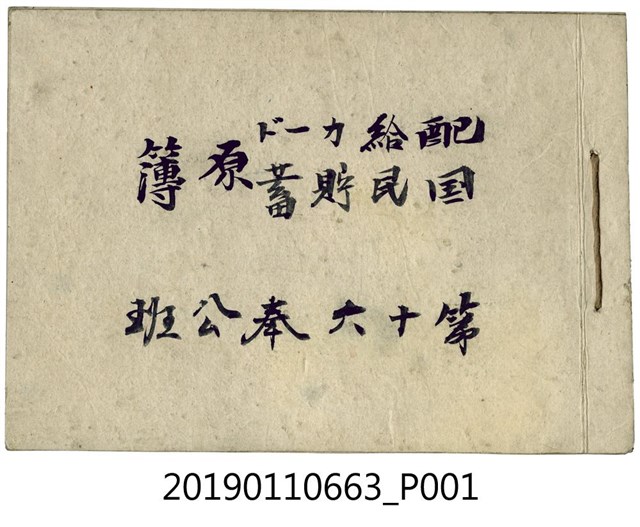 配給カード
国民貯蓄
原簿
第十六奉公班
20190110663_P001